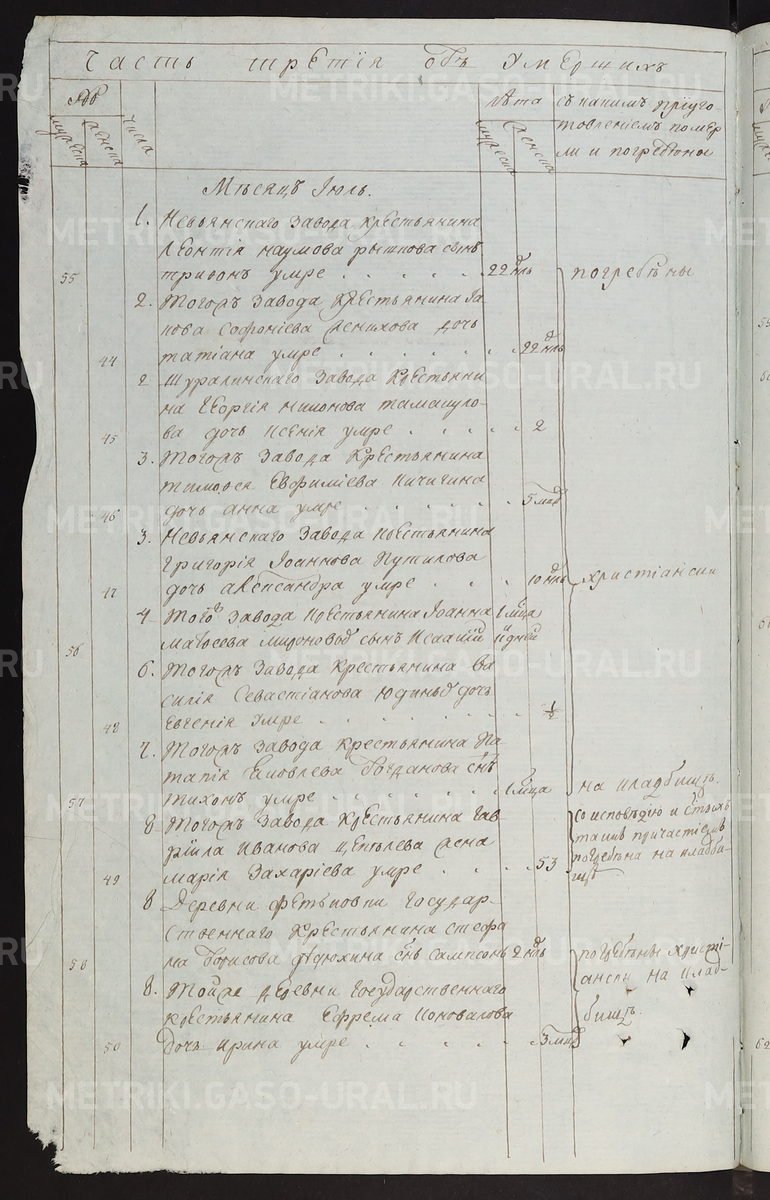 Часть третїя объ умершихъ
№
мужеска
женска
числа
Лѣта
мужеска
женска
съ какимъ прїуго-
товленїемъ помер
ли и погребены
Мѣсяцъ Іюль.
1. Невьянскаго завода крестьянина
Леонтїя наумова рышкова сынъ
55 трифонъ умре . . . . . 22 дн погребены
2. Тогожъ завода крестьянина Іа
кова Софонїева женихова дочь
44 татїана умре . . . . . 22
2 Шуралинскаго завода крестьяни
на Георгїя никонова
45 ва дочь Ксенїя умре . . . . 2
3. Тогожъ завода крестьянина
тимофея Евфимїева Кичигина
46 дочь анна умре . . . . . 5
3. Невьянскаго завода крестьянина
Григорїя Іоаннова Путилова
47 дочь александра умре . . . 10 христїански
4 Тогожъ завода крестьянина Іоанна 1 мѣца
56 матфеева сынъ Исаакїй 11 дней
6. Тогожъ завода крестьянина Ва
силїя Севастїанова Юдиныхъ дочь
48 Евгенїя умре . . . . . ½
7. Тогожъ завода крестьянина По
тапїя Яковлева Богданова сынъ
57 Тихонъ умре . . . . . 1 мѣца на кладбищѣ.
8 Тогожъ завода крестьянина Гав
рїила Иванова жена
49 марїя Захарїева умре . . . 53
со исповѣдїю и Стыхъ
таинъ причастїемъ
погребена на кладби-
щѣ
8 Деревни фетьковки государ-
ственнаго крестьянина стефа
58 на Борисова дѣдюхина сынъ Сампсонъ 2 погребены христї-
8. Тойже деревни государственнаго
крестьянина Ефрема Коновалова
50 дочь ирина умре . . . . . 3
ански на клад-
бищѣ.
METRIKI.GASO-URAL.RU